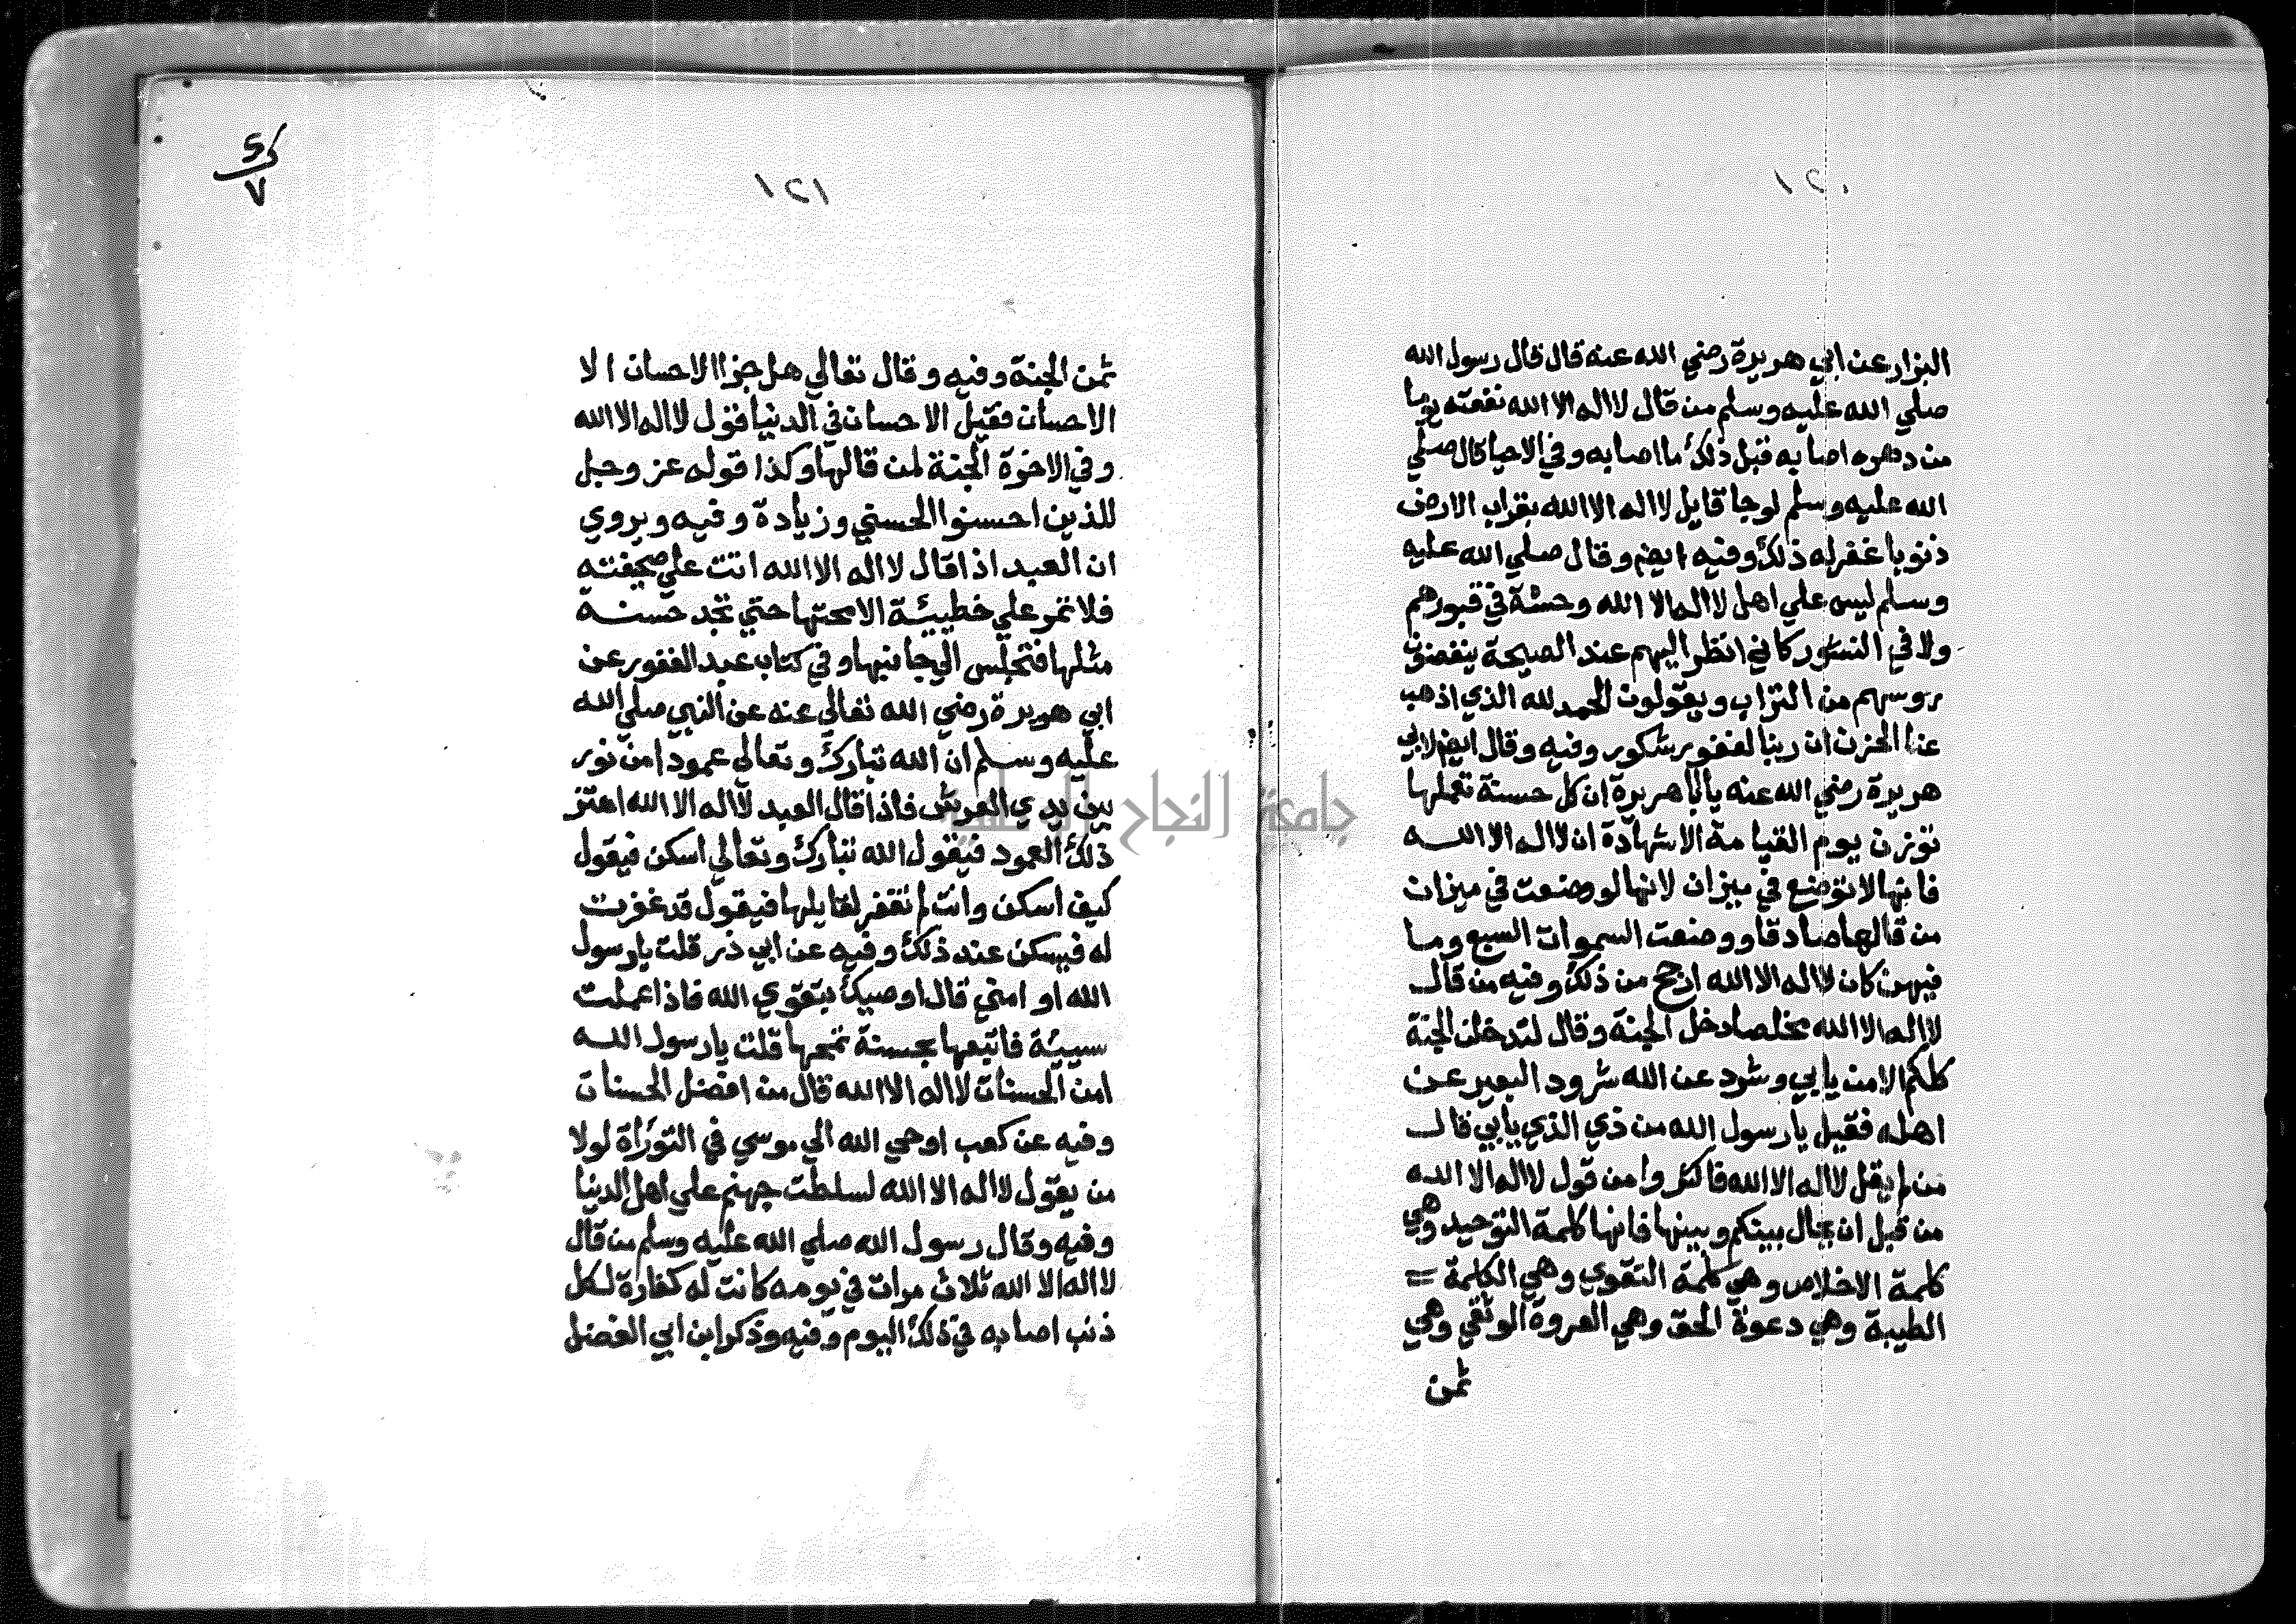 ١٢٠
البزار عن ابي هريرة رضي الله عنه قال قال رسول الله
صلي الله عليه وسلم من قال لااله الا الله نفعته يوما
من دهره اصابه قبل ذلك ما اصابه وفي الاحيا قال صلي
الله عليه وسلم لوجا قايل لااله الا الله بقراب الارض
ذنوبا غفر له ذلك وفيه ايضا وقال صلي الله عليه
وسلم ليس علي اهل لااله الا الله وحشة في قبورهم
ولا في النشور كاني انظر اليهم عند الصيحة ينفضون
روسهم من التراب ويقولون الحمد لله الذي اذهب
عنا الحزن ان ربنا لغفور شكور وفيه وقال ايضا لابي
هريرة رضي الله عنه يا ابا هريرة ان كل حسنة تعملها
توزن يوم القيامة الا شهادة ان لااله الا الله
فانها لا توضع في ميزان لانها لو وضعت في ميزان
من قالها صادقا ووضعت السموات السبع وما
فيهن كان لااله الا الله ارجح من ذلك وفيه من قال
لااله الا الله مخلصا دخل الجنة وقال لتدخلن الجنة
كلكم الا من يابي وشرد عن الله شرود البعير عن
اهله فقيل يا رسول الله من ذي الذي يابي قال
من لم يقل لااله الا الله فاكثروا من قول لااله الا الله
من قبل ان يحال بينكم وبينها فانها كلمة التوحيد وهي
كلمة الاخلاص وهي كلمة التقوي وهي الكلمة =
الطيبة وهي دعوة الحق وهي العروة الوثقي وهي
ثمن
١٢١
ثمن الجنة وفيه وقال تعالي هل جزا الاحسان الا
الاحسان فقيل الاحسان في الدنيا قول لااله الا الله
وفي الاخرة الجنة لمن قالها وكذا قوله عز وجل
للذين احسنوا الحسني وزيادة وفيه ويروي
ان العبد اذا قال لااله الا الله اتت علي صحيفته
فلا تمر علي خطيئة الا محتها حتي تجد حسنة
مثلها فتجلس الي جانبها وفي كتاب عبد الغفور عن
ابي هريرة رضي الله تعالي عنه عن النبي صلي الله
عليه وسلم ان الله تبارك وتعالي عمودا من نور
بين يدي العرش فاذا قال العبد لااله الا الله اهتز
ذلك العمود فيقول الله تبارك وتعالي اسكن فيقول
كيف اسكن وانت لم تغفر لقايلها فيقول قد غفرت
له فيسكن عند ذلك وفيه عن ابي ذر قلت يا رسول
الله او امني قال اوصيك بتقوي الله فاذا عملت
سيئة فاتبعها بحسنة تمحها قلت يا رسول الله
امن الحسنات لااله الا الله قال من افضل الحسنات
وفيه عن كعب اوحي الله الي موسي في التوراة لولا
من يقول لااله الا الله لسلطت جهنم علي اهل الدنيا
وفيه وقال رسول الله صلي الله عليه وسلم من قال
لااله الا الله ثلاث مرات في يومه كانت له كفارة لكل
ذنب اصابه في ذلك اليوم وفيه وذكر ابن ابي الفضل
جامعة النجاح الوطنية